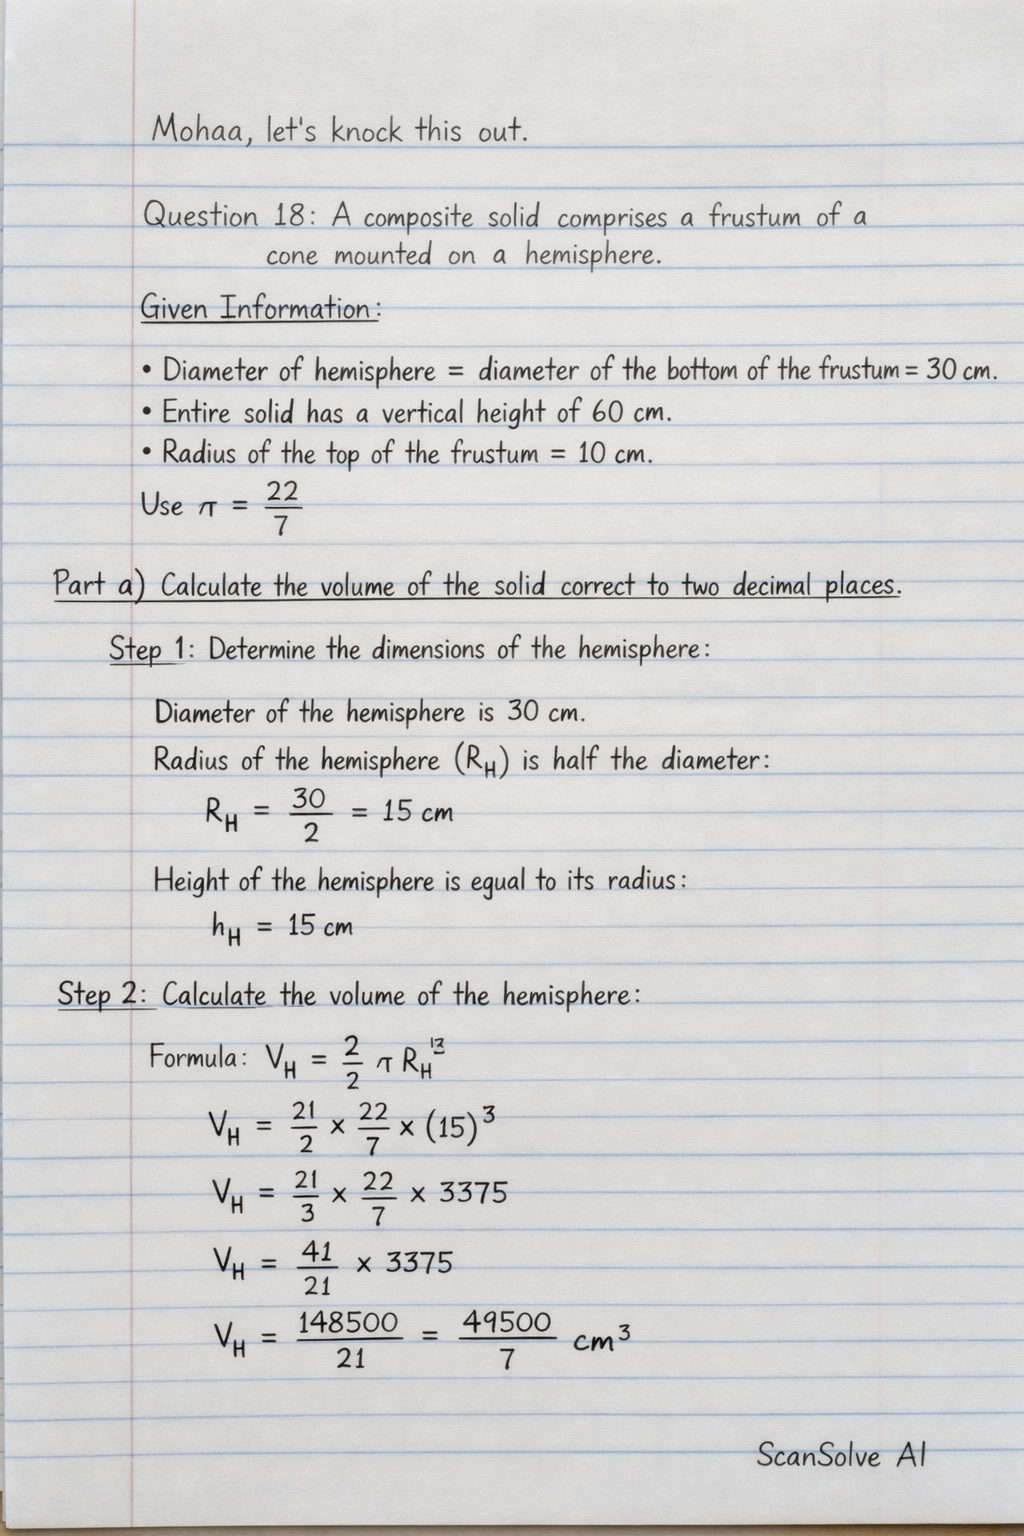 Mohaa, let's knock this out.
Question 18: A composite solid comprises a frustum of a
cone mounted on a hemisphere.
Given Information:
• Diameter of hemisphere = diameter of the bottom of the frustum = 30 cm.
• Entire solid has a vertical height of 60 cm.
• Radius of the top of the frustum = 10 cm.
Use π = 22/7
Part a) Calculate the volume of the solid correct to two decimal places.
Step 1: Determine the dimensions of the hemisphere:
Diameter of the hemisphere is 30 cm.
Radius of the hemisphere (R_H) is half the diameter:
R_H = 30/2 = 15 cm
Height of the hemisphere is equal to its radius:
h_H = 15 cm
Step 2: Calculate the volume of the hemisphere:
Formula: V_H = 2/2 π R_H
V_H = 21/2 × 22/7 × (15)³
V_H = 21/3 × 22/7 × 3375
V_H = 41/21 × 3375
V_H = 148500/21 = 49500/7 cm³
ScanSolve AI